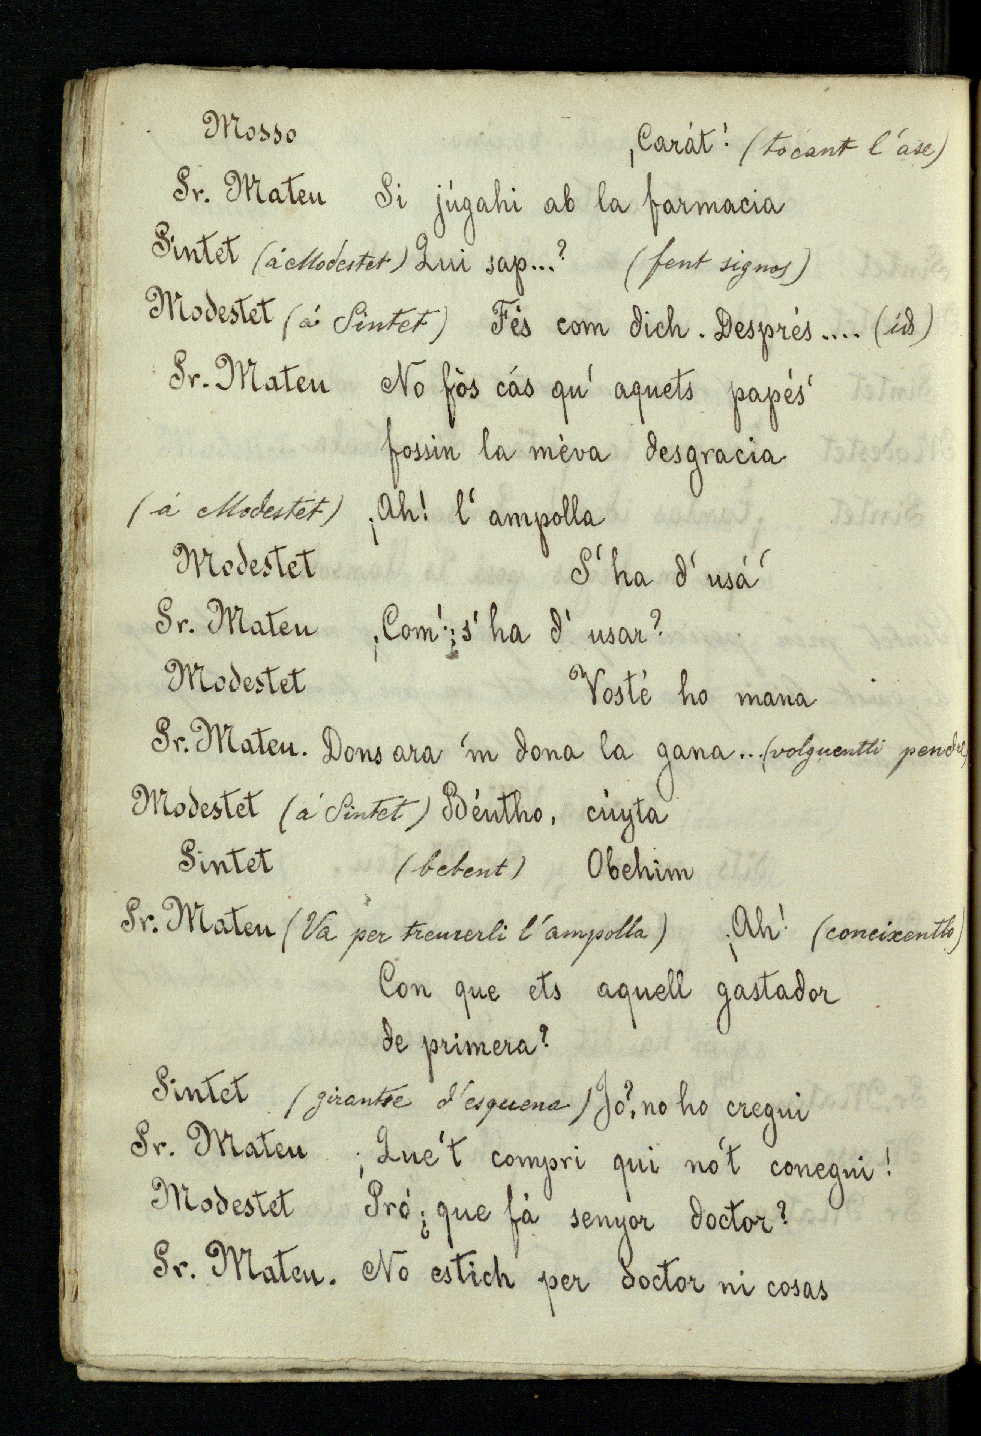 Mosso ¡Carát! (tocant l'ase)
Sr. Mateu Si júgahi ab la farmacia
Sintet (á Modestet) Qui sap...? (fent signos)
Modestet (á Sintet) Fés com dich. Després.... (id)
Sr. Mateu No fòs cás qu' aquets papés'
fossin la mèva desgracia
(á Modestet) ¡Ah! l' ampolla
Modestet S' ha d' usá'
Sr. Mateu ¡Com! ¿s' ha d' usar?
Modestet Vosté ho mana
Sr. Mateu. Dons ara 'm dona la gana... (volguentli pendre)
Modestet (á Sintet) Béutho, cúyta
Sintet (bebent) Obehim
Sr. Mateu (Va per treurerli l'ampolla) ¡Ah! (coneixentlo)
Con que ets aquell gastador
de primera?
Sintet (girantse d'esquena) Jo?, no ho cregui
Sr. Mateu ¡Que't compri qui no't conegui!
Modestet Pró ¿que fá senyor doctor?
Sr. Mateu. No estich per doctor ni cosas